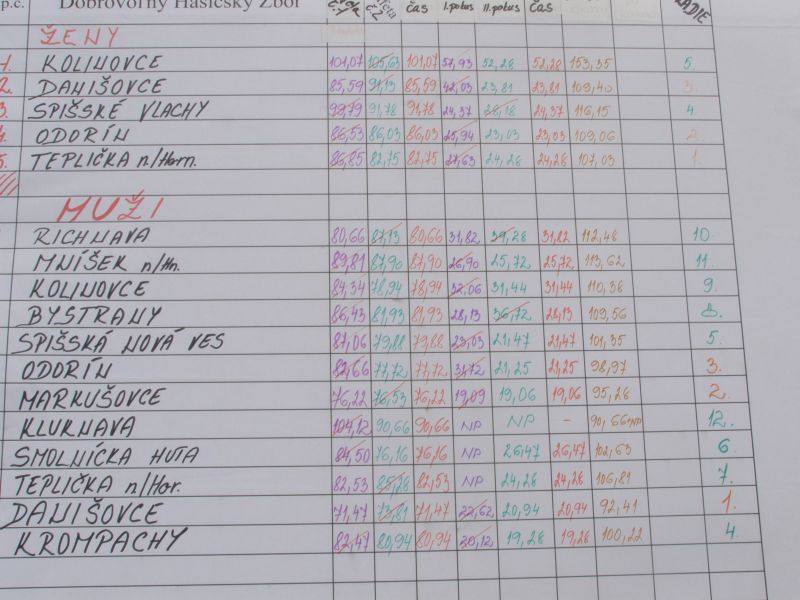 p.č. Dobrovoľný Hasičský Zbor č.1 č.2 čas I.pokus II.pokus čas
ŽENY
1. KOLINOVCE 101,07 105,63 101,07 51,93 52,28 52,28 153,35 5.
2. DANIŠOVCE 85,59 91,13 85,59 42,03 23,81 23,81 109,40 3.
3. SPIŠSKÉ VLACHY 99,79 91,78 91,78 24,37 28,18 24,37 116,15 4.
4. ODORÍN 86,53 86,03 86,03 25,94 23,03 23,03 109,06 2.
5. TEPLIČKA n/Horn. 86,85 82,75 82,75 27,63 24,28 24,28 107,03 1.
MUŽI
RICHNAVA 80,66 87,13 80,66 31,82 39,28 31,82 112,48 10.
MNÍŠEK n/Hn. 89,81 87,90 87,90 26,90 25,72 25,72 113,62 11.
KOLINOVCE 84,34 78,94 78,94 32,06 31,44 31,44 110,38 9.
BYSTRANY 86,43 81,93 81,93 28,13 36,72 28,13 109,56 8.
SPIŠSKÁ NOVÁ VES 87,06 79,88 79,88 23,03 21,47 21,47 101,35 5.
ODORÍN 82,66 77,72 77,72 31,72 21,25 21,25 98,97 3.
MARKUŠOVCE 76,22 76,53 76,22 19,09 19,06 19,06 95,28 2.
KLUKNAVA 104,12 90,66 90,66 NP NP - 90,66NP 12.
SMOLNÍCKA HUTA 84,50 76,16 76,16 NP 26,47 26,47 102,63 6
TEPLIČKA n/Hor. 82,53 85,28 82,53 NP 24,28 24,28 106,81 7.
DANIŠOVCE 71,47 73,81 71,47 22,62 20,94 20,94 92,41 1.
KROMPACHY 82,47 80,94 80,94 20,12 19,28 19,28 100,22 4.